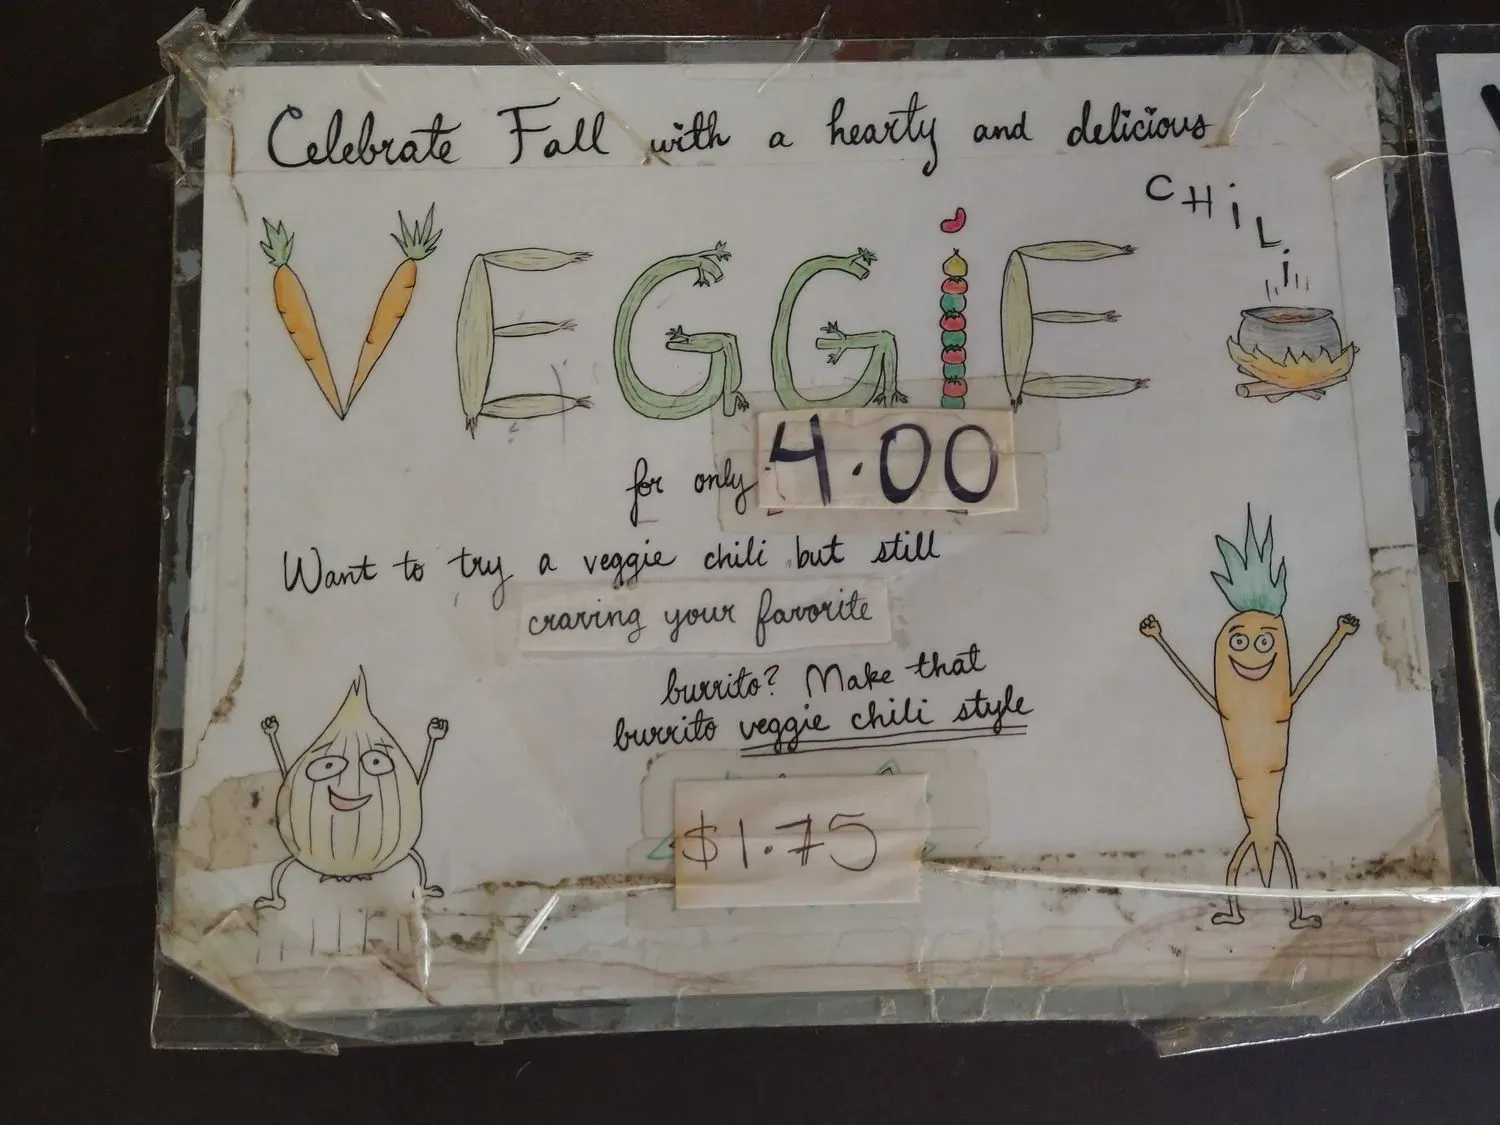 Celebrate Fall with a hearty and delicious
VEGGiE
CHiLi
for only 4.00
Want to try a veggie chili but still
craving your favorite
burrito? Make that
burrito veggie chili style
$1.75